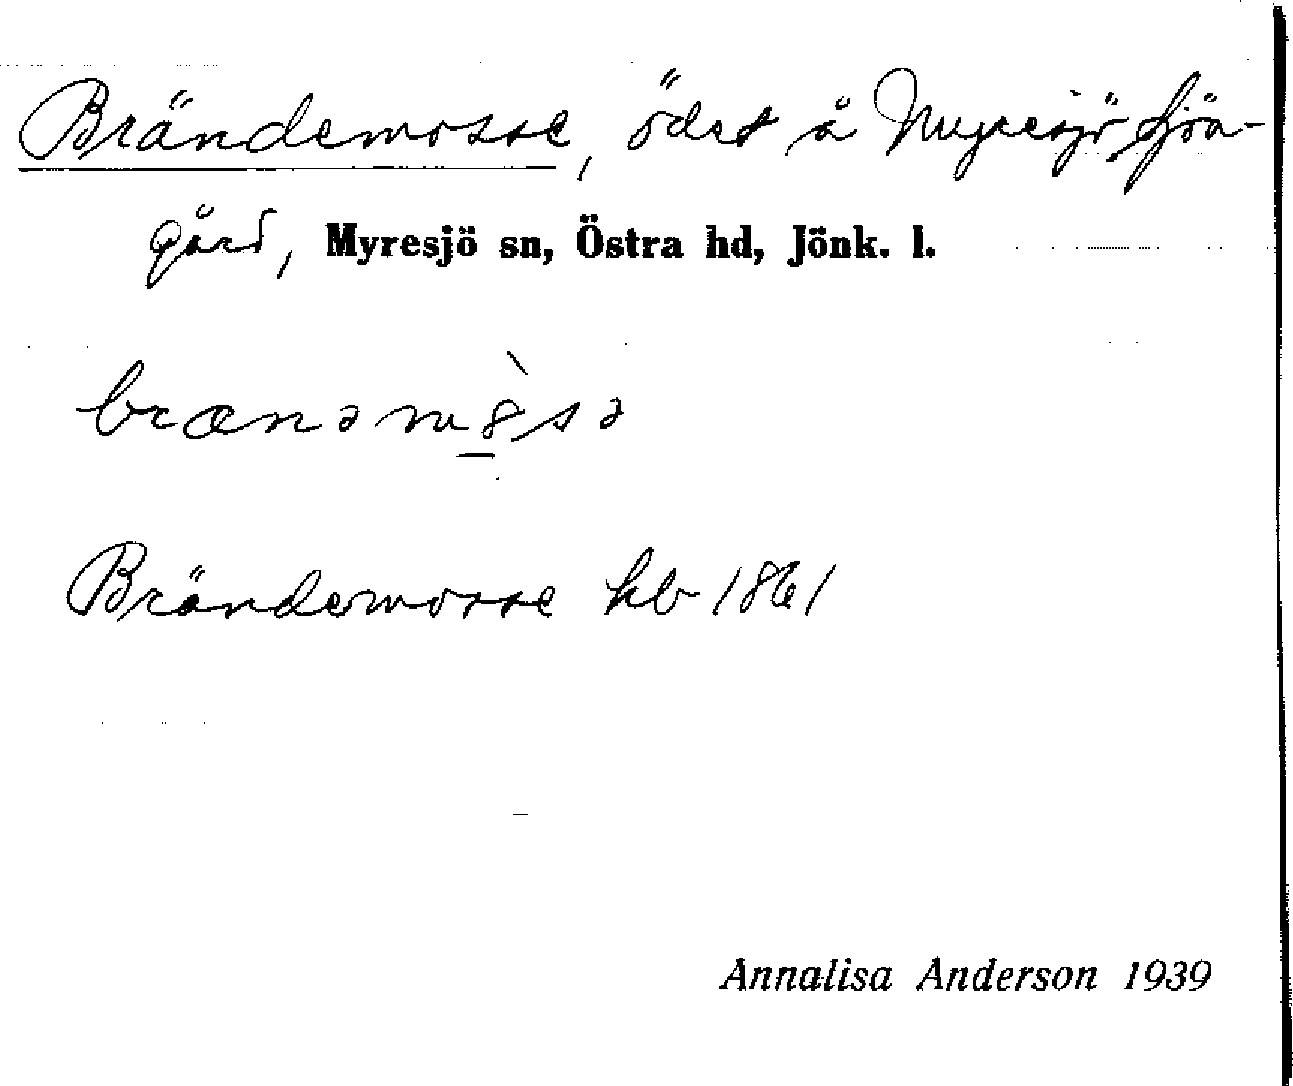 Brändemosse, ödet å Myresjö Sjöa-
gård, Myresjö sn, Östra hd, Jönk. l.
brænəm8̠̀sə
Brändemosse hb 1861
Annalisa Anderson 1939